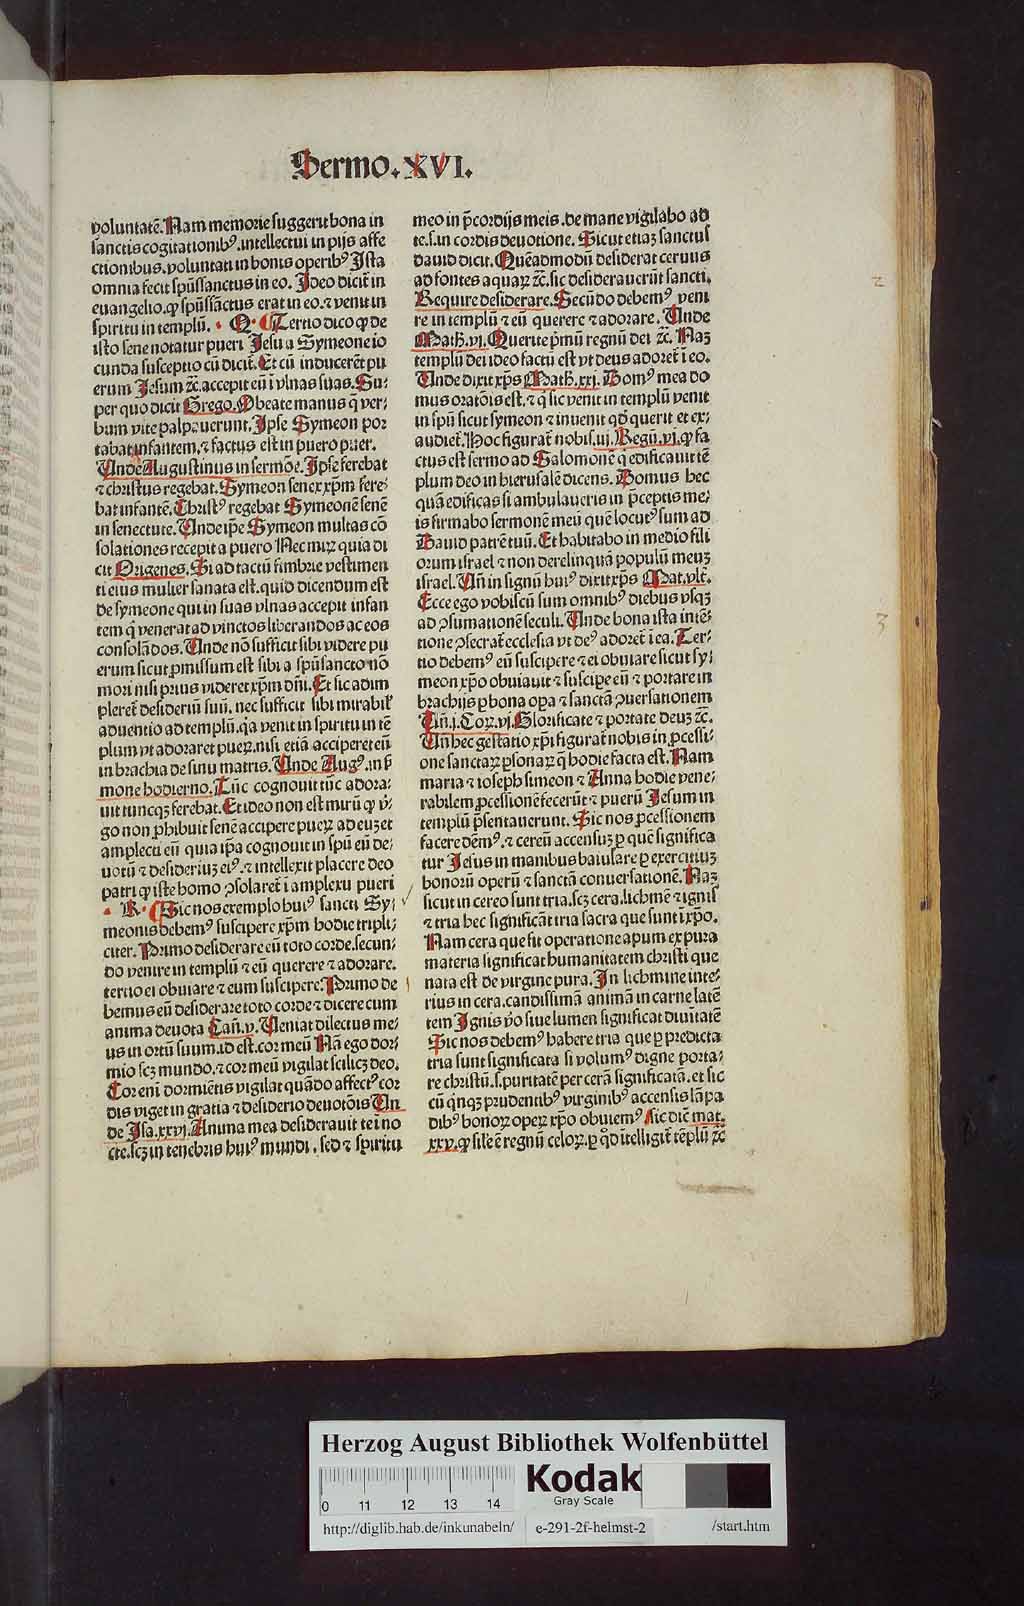 Sermo.XVI.
voluntatē. Nam memorie suggerit bona in
sanctis cogitationibꝰ. intellectui in pijs affe
ctionibus. voluntati in bonis operibꝰ Ista
omnia fecit spūssanctus in eo. Ideo dicit in
euangelio. ꝙ spūssāctus erat in eo. ⁊ venit in
spiritu in templū. Q. Tertio dico ꝙ de
isto sene notatur pueri Jesu a Symeone io
cunda susceptio cū dicit. Et cū inducerēt pu
erum Jesum ⁊c̄. accepit eū ī vlnas suas. Su⸗
per quo dicit Grego. O beate manus q̄ ver⸗
bum vite palpauerunt. Ipse Symeon por
tabat infantem. ⁊ factus est in puero puer.
Unde Augustinus in sermōe. Ipse ferebat
⁊ christus regebat. Symeon senex xp̄m fere⸗
bat infantē. Christꝰ regebat Symeonē senē
in senectute. Unde ip̄e Symeon multas cō
solationes recepit a puero Nec miꝝ quia di
cit Origenes. Si ad tactū fimbrie vestimen
ti eius mulier sanata est. quid dicendum est
de symeone qui in suas vlnas accepit infan
tem q̄ venerat ad vinctos liberandos ac eos
consolādos. Unde nō sufficit sibi videre pu
erum sicut ꝓmissum est sibi a spūsancto nō
mori nisi prius videret xp̄m dn̄i. Et sic adim
pleret desideriū suū. nec sufficit sibi mirabil'
aduentio ad templū. q̄a venit in spiritu in tē
plum vt adoraret pueꝝ. nisi etiā acciperet eū
in brachia de sinu matris. Unde Augꝰ. in s̄
mone hodierno. Tūc cognouit tūc adora⸗
uit tuncqꝫ ferebat. Et ideo non est mirū ꝙ v̓⸗
go non ꝓhibuit senē accipere pueꝝ ad eūꝫ et
amplecti eū quia ip̄a cognouit in spū eū de⸗
uotū ⁊ desideriuꝫ eiꝰ. ⁊ intellexit placere deo
patri ꝙ iste homo ꝯsolaret̄ ī amplexu pueri
R. Sic nos exemplo huiꝰ sancti Sy⸗
meonis debemꝰ suscipere xp̄m hodie tripli⸗
citer. Primo desiderare eū toto corde. secun⸗
do venire in templū ⁊ eū querere ⁊ adorare.
tertio ei obuiare ⁊ eum suscipere. Primo de
bemus eū desiderare toto corde ⁊ dicere cum
anima deuota Cañ. v. Ueniat dilectus me⸗
us in ortū suum. id est. cor meū Nā ego dor⸗
mio scꝫ mundo. ⁊ cor meū vigilat scilicꝫ deo.
Cor enī dormiētis vigilat quādo affectꝰ cor
dis viget in gratia ⁊ desiderio deuotōis Un
de Isa. xxvj. Anima mea desiderauit te ī no
cte. scꝫ in tenebris huiꝰ mundi. sed ⁊ spiritu
meo in p̄cordijs meis. de mane vigilabo ad
te. s. in cordis deuotione. Sicut etiaꝫ sanctus
dauid dicit. Quēadmodū desiderat ceruus
ad fontes aquaꝝ ⁊c̄. sic desiderauerūt sancti.
Require desiderare. Secūdo debemꝰ veni
re in templū ⁊ eū querere ⁊ adorare. Unde
Math. vj. Querite pˈmū regnū dei ⁊c̄. Naꝫ
templū dei ideo factū est vt deus adoret̄ ī eo.
Unde dixit xp̄s Math. xxj. Domꝰ mea do
mus oratōis est. ⁊ q̇ sic venit in templū venit
in spū sicut symeon ⁊ inuenit qd̄ querit et ex⸗
audiet̄. Hoc figurat̄ nobis. iij. Regū. vj. ꝙ fa
ctus est sermo ad Salomonē q̇ edificauit tē
plum deo in hierusalē dicens. Domus hec
quā edificas si ambulaueris in p̄ceptis me⸗
is firmabo sermonē meū quē locutꝰ sum ad
Dauid patrē tuū. Et habitabo in medio fili
orum israel ⁊ non derelinquā populū meuꝫ
israel. Uñ in signū huiꝰ dixit xp̄s Mat. vlt̄.
Ecce ego vobiscū sum omnibꝰ diebus vsqꝫ
ad ꝯsumationē seculi. Unde bona ista intē⸗
tione ꝯsecrat̄ ecclesia vt deꝰ adoret̄ ī ea. Ter⸗
tio debemꝰ eū suscipere ⁊ ei obuiare sicut sy⸗
meon xp̄o obuiauit ⁊ suscipe eū ⁊ portare in
brachijs ꝑ bona oꝑa ⁊ sanctā ꝯuersationem
Uñ. j. Coꝝ. vj. Glorificate ⁊ portate deuꝫ ⁊c̄.
Uñ hec gestatio xp̄i figurat̄ nobis in ꝓcessi⸗
one sanctaꝝ ꝑsonaꝝ q̄ hodie facta est. Nam
maria ⁊ ioseph simeon ⁊ Anna hodie vene⸗
rabilem ꝓcessionē fecerūt ⁊ puerū Jesum in
templū p̄sentauerunt. Sic nos ꝓcessionem
facere dēmꝰ. ⁊ cereū accensuꝫ ꝑ quē significa
tur Jesus in manibus baiulare ꝑ exercitiuꝫ
bonorū operū ⁊ sanctā conuersationē. Naꝫ
sicut in cereo sunt tria. scꝫ cera. lichmē ⁊ ignis
⁊ tria hec significāt tria sacra que sunt ī xp̄o.
Nam cera que fit operatione apum ex pura
materia significat humanitatem christi que
nata est de virgine pura. In lichmine inte⸗
rius in cera. candissimā animā in carne latē
tem Ignis v̓o siue lumen significat diuitatē
Sic nos debemꝰ habere tria que ꝑ predicta
tria sunt significata si volumꝰ digne porta⸗
re christū. s. puritatē per cerā significatā. et sic
cū q̇nqꝫ prudentibꝰ virginibꝰ accensis lāpa
dibꝰ bonoꝝ opeꝝ xp̄o obuiemꝰ sic dic̄ mat.
xxv. ꝙ sil'e ē regnū celoꝝ. ꝑ qd̄ ītelligit̄ tēplū ⁊c̄
2
3
Herzog August Bibliothek Wolfenbüttel
0 11 12 13 14
Kodak
Gray Scale
http://diglib.hab.de/inkunabeln/ e-291-2f-helmst-2 /start.htm